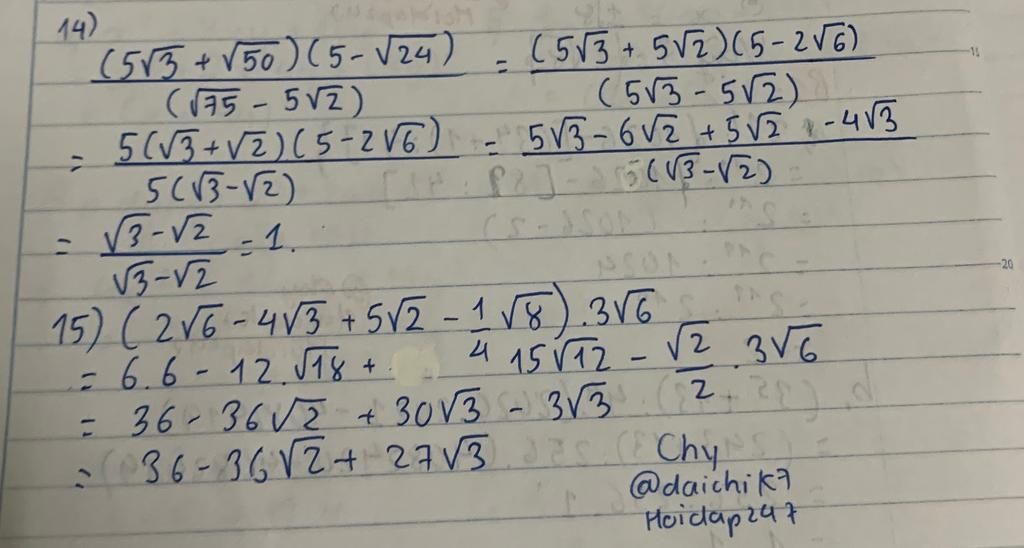 14)
(5√3 + √50)(5 - √24) / (√75 - 5√2) = (5√3 + 5√2)(5 - 2√6) / (5√3 - 5√2)
= 5(√3 + √2)(5 - 2√6) / 5(√3 - √2) = 5√3 - 6√2 + 5√2 - 4√3 / (√3 - √2)
= √3 - √2 / √3 - √2 = 1.
15) (2√6 - 4√3 + 5√2 - 1/4 √8) . 3√6
= 6.6 - 12.√18 + 15√12 - √2/2 . 3√6
= 36 - 36√2 + 30√3 - 3√3
= 36 - 36√2 + 27√3
Chy
@daichik7
Hoidap247